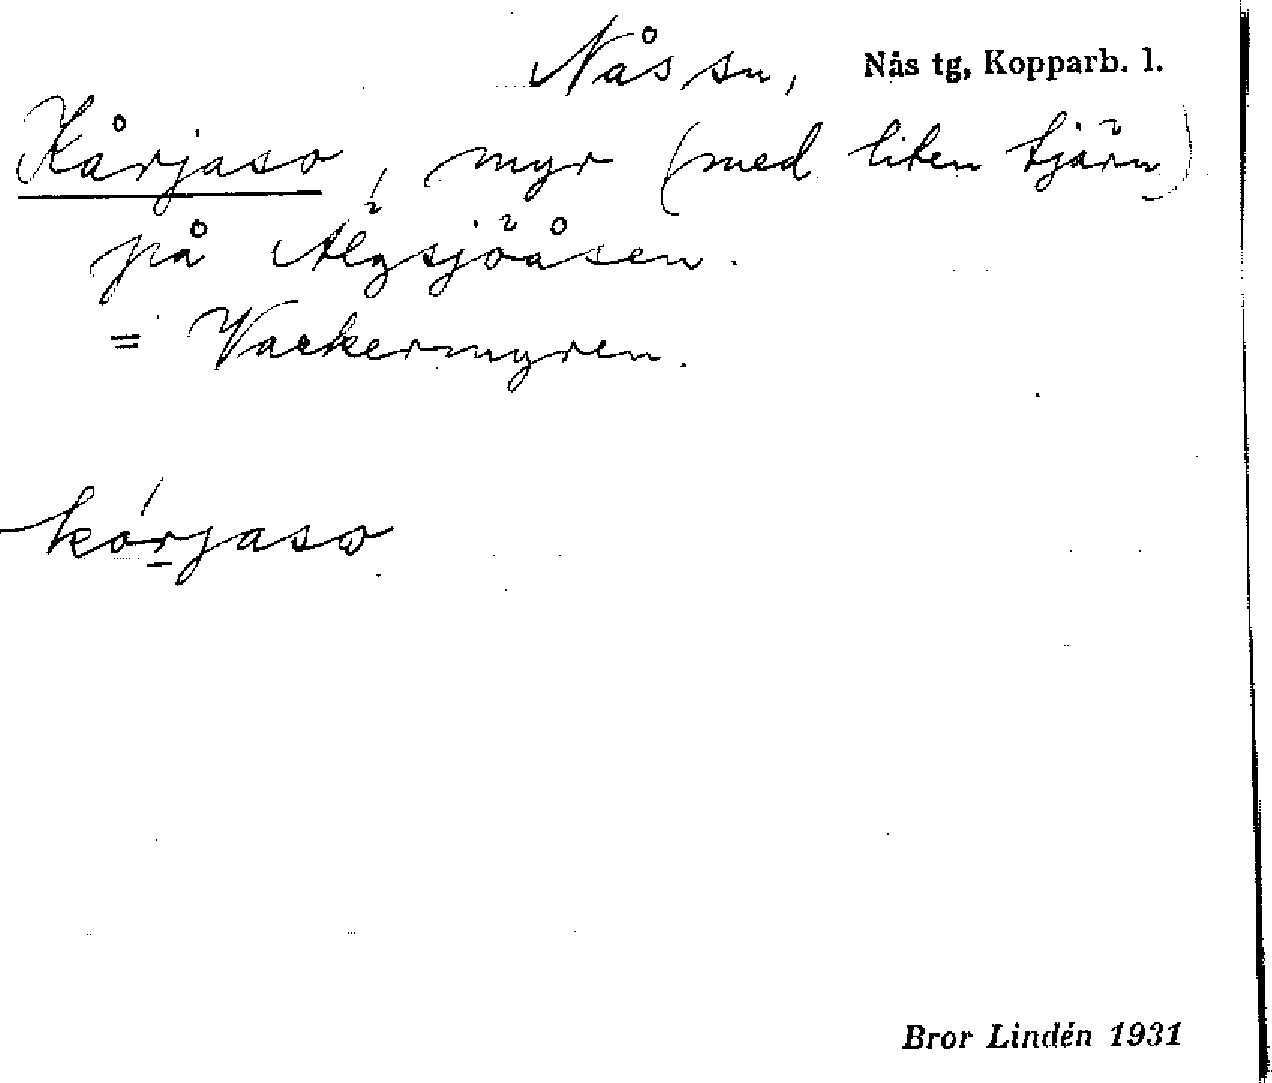 Nås sn, Nås tg, Kopparb. l.
Kårjaso, myr (med liten tjärn)
på Älgsjöåsen.
= Vackermyren.
kórjaso
Bror Lindén 1931